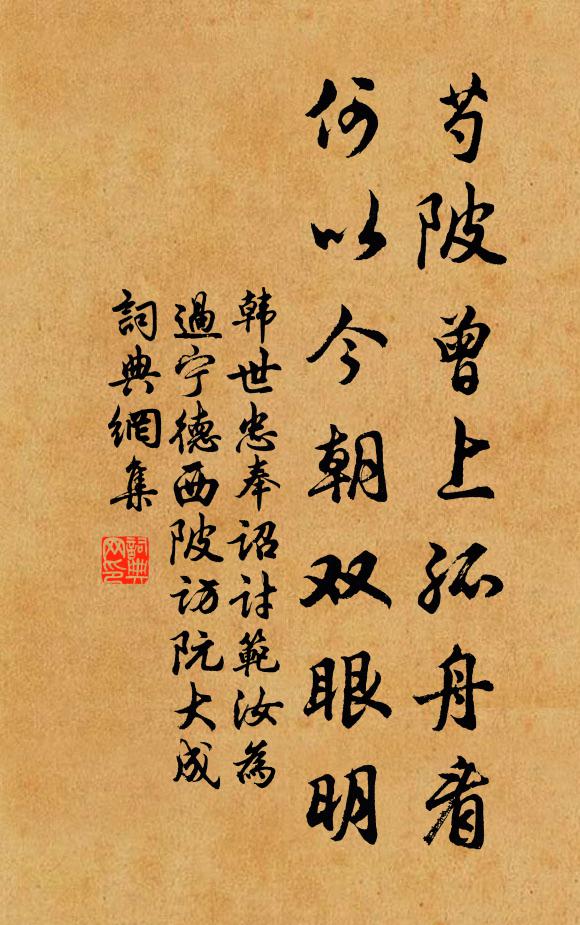 芍陂曾上孤舟看
何以今朝双眼明
韩世忠奉诏讨範汝為
過宁德西陂访阮大成
詞典網集
詞典网印